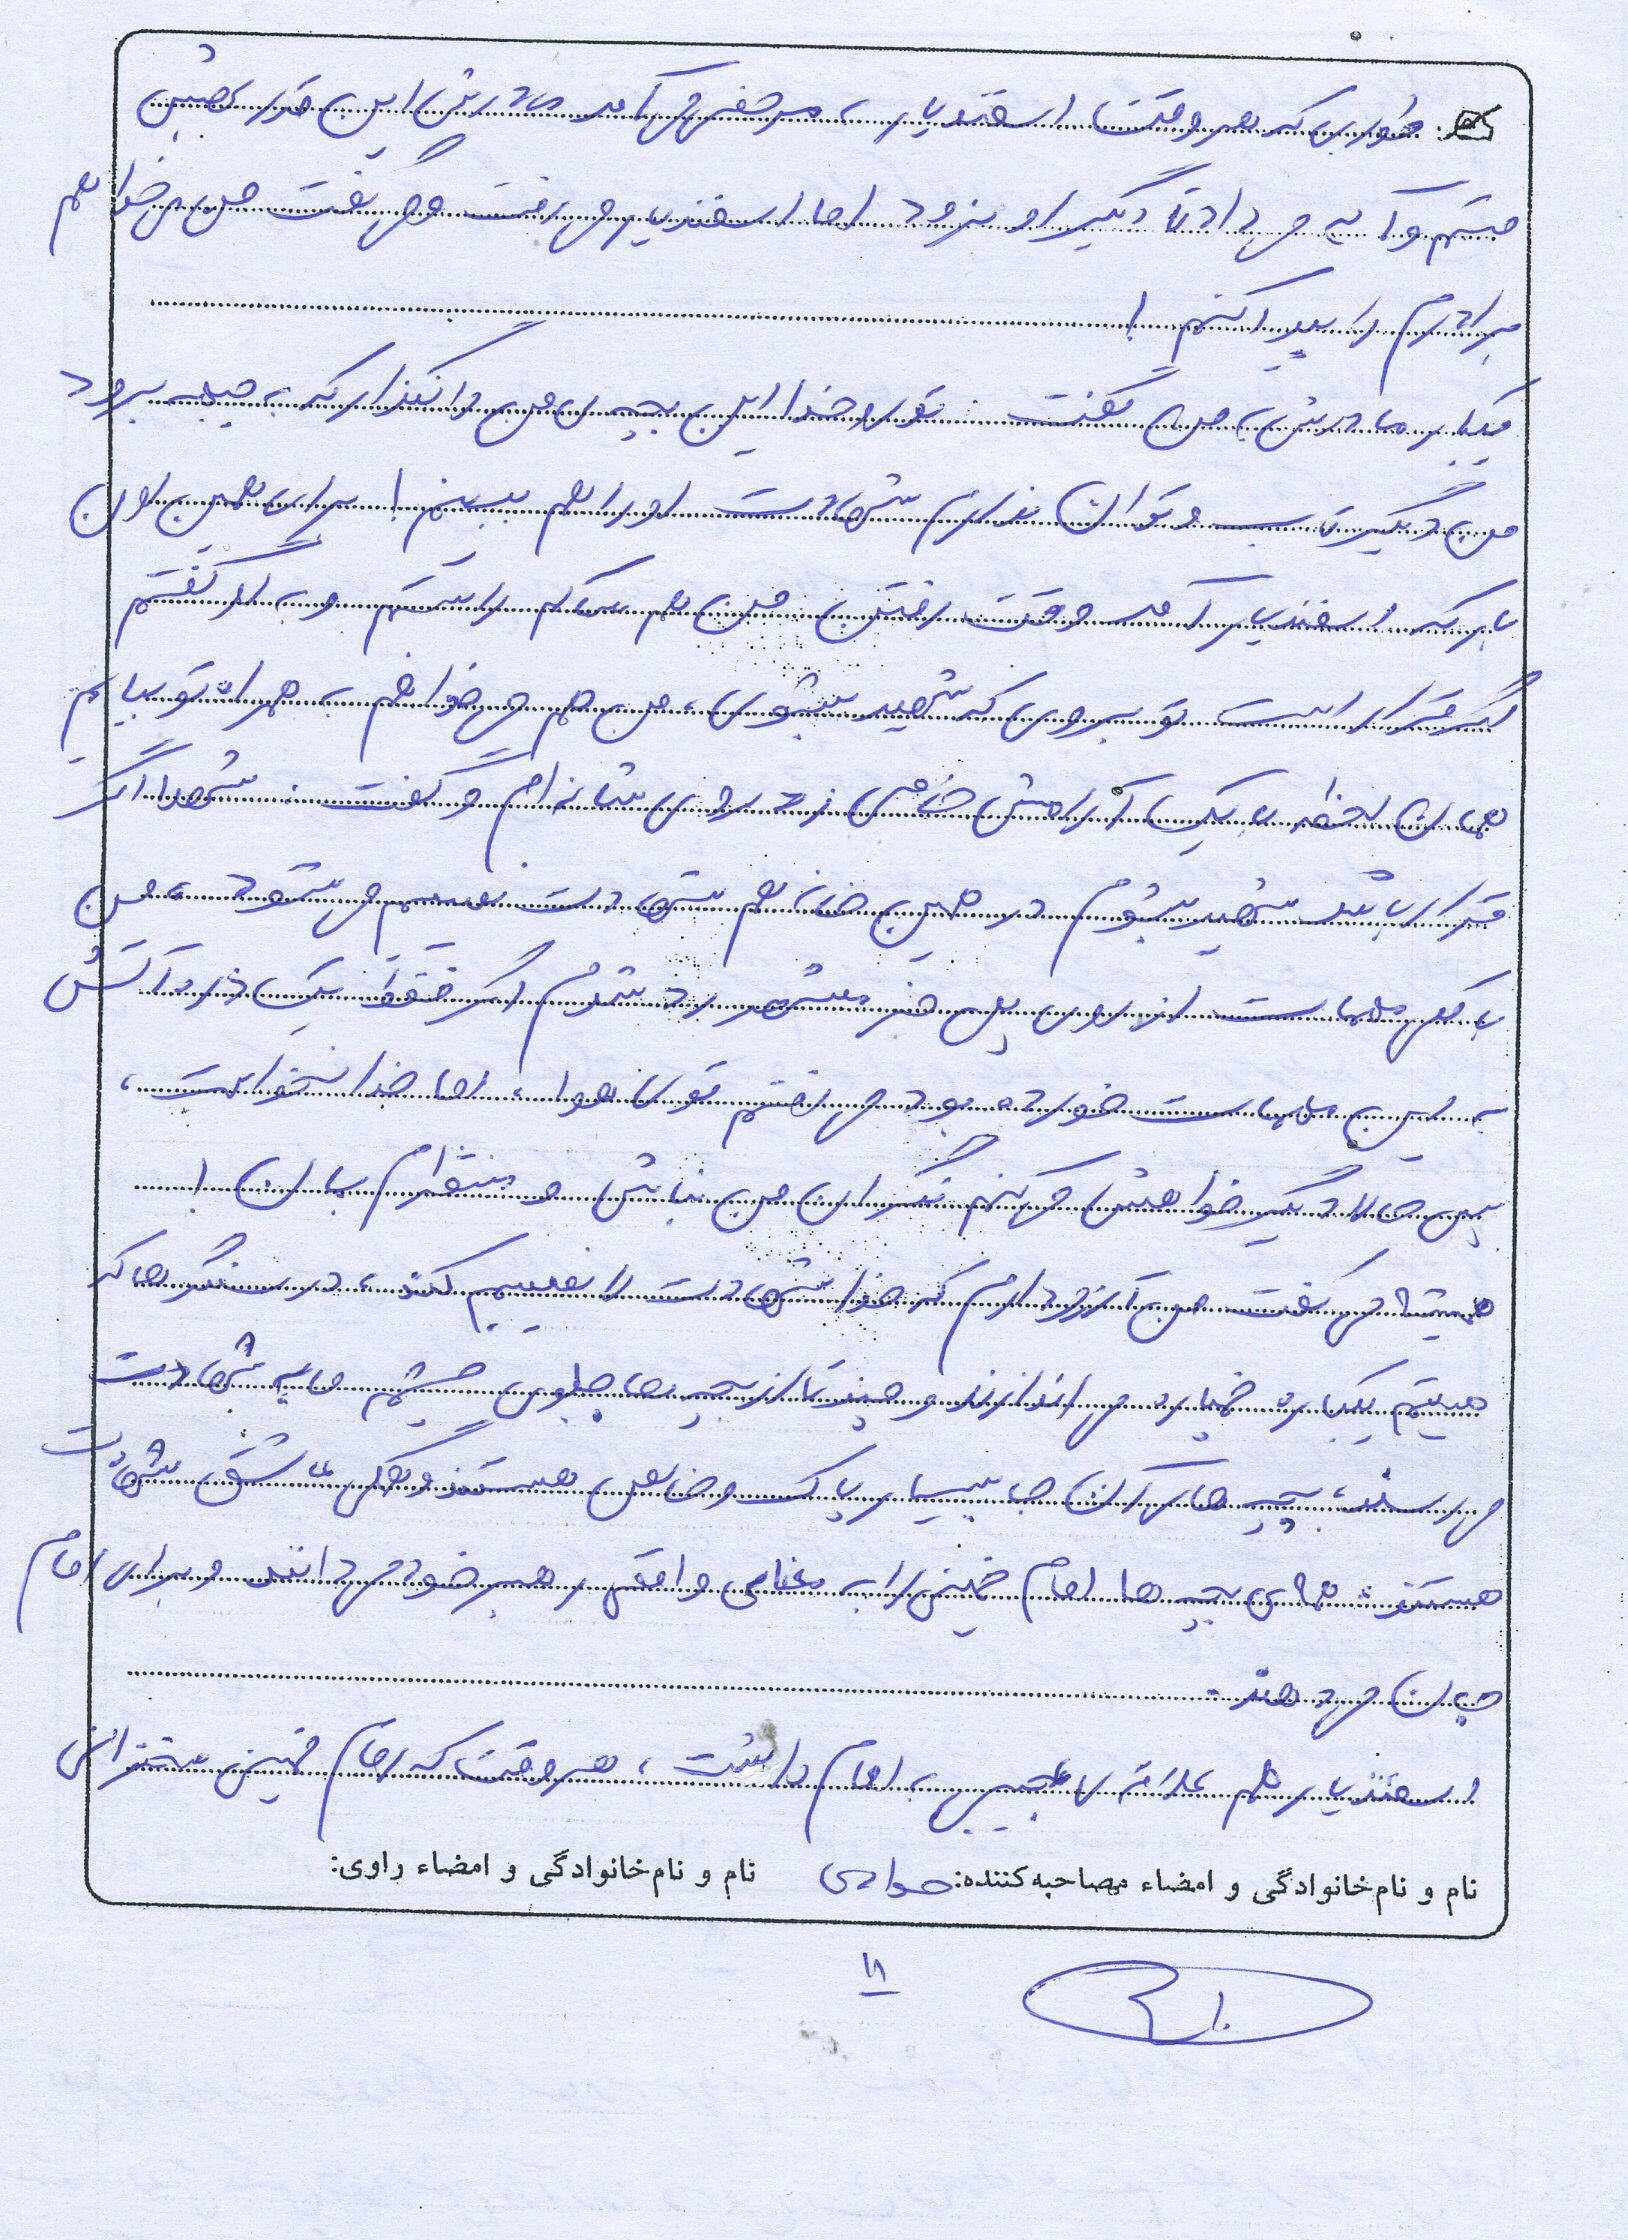 طوری که هر وقت اسفندیار به مرخصی می آمد مادرش این قدر بهش
قسم و آیه می داد تا دیگر او نرود اما اسفندیار می رفت و می گفت من می خواهم
برادرم را پیدا کنم !
یکبار مادرش به من گفت : تو رو خدا این بچه ی من را نگذار که به جبهه برود
من دیگر تاب و توان ندارم شهادت او را هم ببینم ! برای همین اون
بار که اسفندیار آمد وقت رفتن من هم ساکم را بستم و به او گفتم
اگر قرار است تو بروی که شهید بشوی ، من هم می خواهم به همراه تو بیایم
همان لحظه با یک آرامش خاصی زد روی شانه ام و گفت : شهدا اگر
قرار باشد شهید بشوم در همین خانه هم شهادت نصیبم می شود ، من
با کلی مهمات از روی پل خرمشهر رد شدم اگر فقط یک ذره آتش
به این مهمات خورده بود می رفتم توی هوا ، اما خدا نخواست ،
پس حالا دیگر خواهش می کنم نگران من نباش و منتظرم بمان !
همیشه می گفت من آرزو دارم که خدا شهادت را نصیبم کند ، در سنگرها که
هستیم یکباره خمپاره می اندازند و چند تا از بچه ها جلوی چشم ما به شهادت
می رسند ، بچه های آن جا بسیار پاک و خالص هستند و همگی عاشق شهادت
هستند ، همه ی بچه ها امام خمینی را به معنای واقعی رهبر خود می دانند و برای امام
جان می دهند .
اسفندیار هم علاقه ی عجیبی به امام داشت ، هر وقت که امام خمینی سخنرانی
نام و نام خانوادگی و امضاء مصاحبه کننده: جوادی نام و نام خانوادگی و امضاء راوی:
۱۸